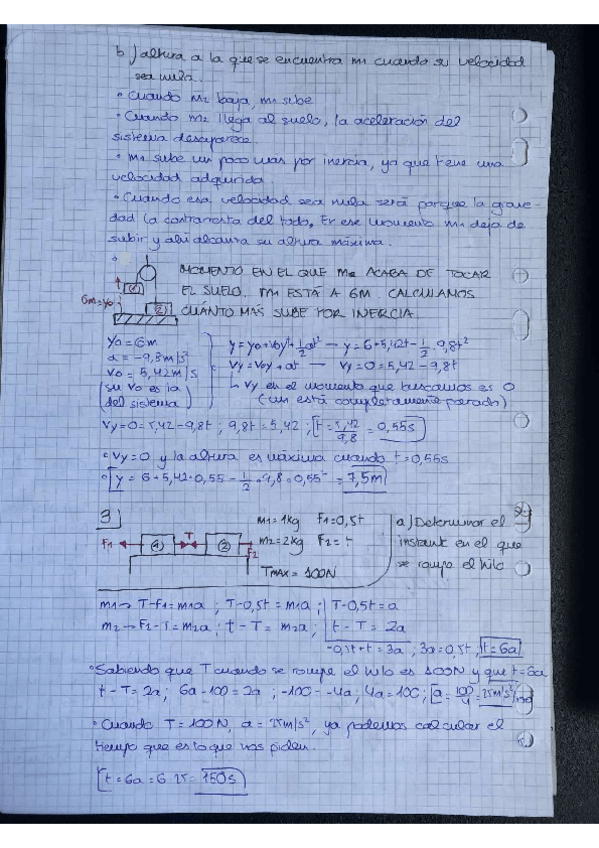 b) altura a la que se encuentra m1 cuando su velocidad
sea nula.
• Cuando m2 baja, m1 sube
• Cuando m2 llega al suelo, la aceleración del
sistema desaparece.
• m1 sube un poco más por inercia, ya que tiene una
velocidad adquirida
• Cuando esa velocidad sea nula será porque la grave-
dad la contrarresta del todo. En ese momento m1 deja de
subir y ahí alcanza su altura máxima.
MOMENTO EN EL QUE M2 ACABA DE TOCAR
EL SUELO. M1 ESTÁ A 6M. CALCULAMOS
CUÁNTO MÁS SUBE POR INERCIA.
6m=y0
1
2
y0=6m
a=-9,8m/s²
v0=5,42m/s
(su v0 es la
del sistema)
y=y0+v0yt+1/2at² — y=6+5,42t-1/2·9,8t²
vy=v0y+at — vy=0=5,42-9,8t
↳ vy en el momento que buscamos es 0
(m1 está completamente parado)
vy=0=5,42-9,8t ; 9,8t=5,42 ; t=5,42/9,8=0,55s
• vy=0 y la altura es máxima cuando t=0,55s
• y=6+5,42·0,55-1/2·9,8·0,55²=7,5m
3
F1
1
T
2
F2
m1=1kg F1=0,5t
m2=2kg F2=t
TMAX=100N
a) Determinar el
instante en el que
se rompe el hilo
m1→ T-F1=m1a ; T-0,5t=m1a ; T-0,5t=a
m2→ F2-T=m2a ; t-T=m2a ; t-T=2a
-0,5t+t=3a ; 3a=0,5t ; t=6a
• Sabiendo que T cuando se rompe el hilo es 100N y que t=6a
t-T=2a ; 6a-100=2a ; -100=-4a ; 4a=100 ; a=100/4=25m/s²
• Cuando T=100N, a=25m/s², ya podemos calcular el
tiempo que es lo que nos piden.
t=6a=6·25=150s